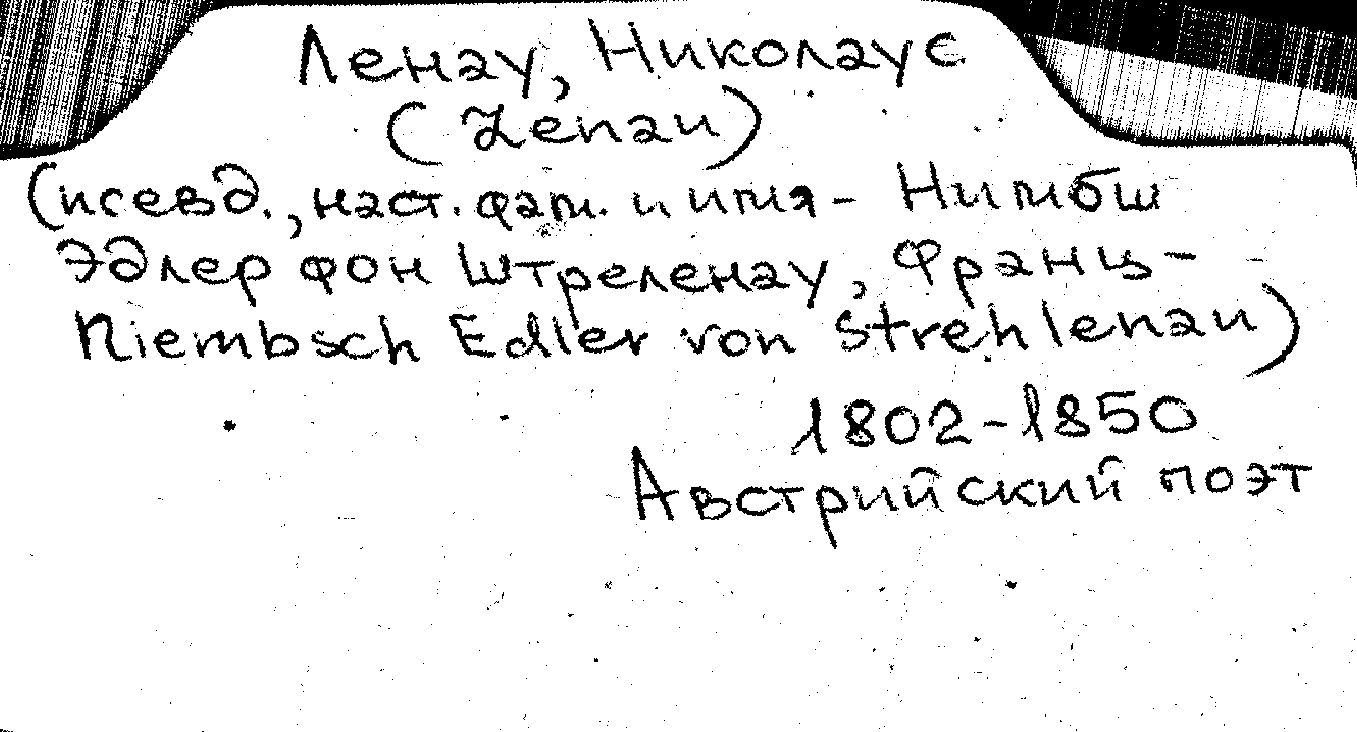 Ленау, Николаус
(Lenau)
(псевд., наст. фам. и имя - Нимбш
Эдлер фон Штреленау, Франц-
Niembsch Edler von Strehlenau)
1802-1850
Австрийский поэт